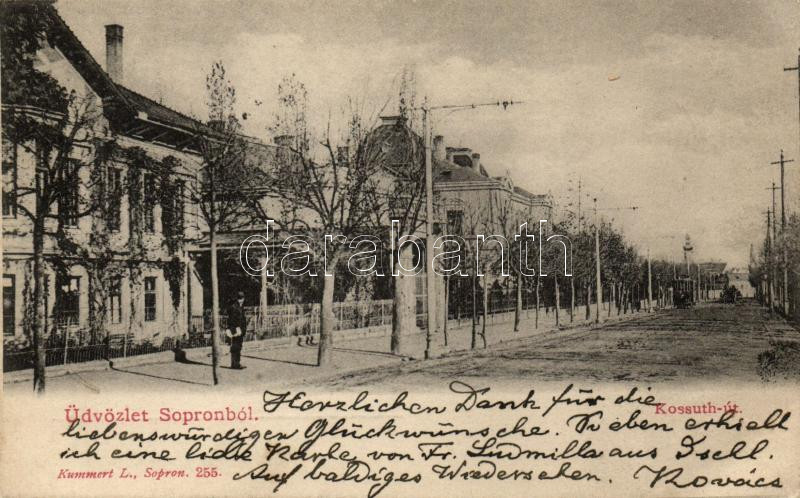 darabanth
Üdvözlet Sopronból.
Kossuth-út.
Herzlichen Dank für die
liebenswürdigen Glückwünsche. Soeben erhielt
ich eine liebe Karte von Fr. Ludmilla aus Ischl.
Auf baldiges Wiedersehen. Kovács
Kummert L., Sopron. 255.